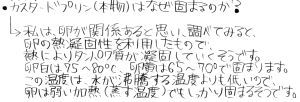 ・カスタードプリン(本物)はなぜ固まるのか?
→私は、卵が関係あると思い、調べてみると、
卵の熱凝固性を利用したもので、
熱によりタンパク質が凝固していくそうです。
卵白は75~80℃、卵黄は65~70℃で固まります。
この温度は、水が沸騰する温度よりも低いので、
卵は弱い加熱(蒸す温度)でもしっかり固まるそうです。